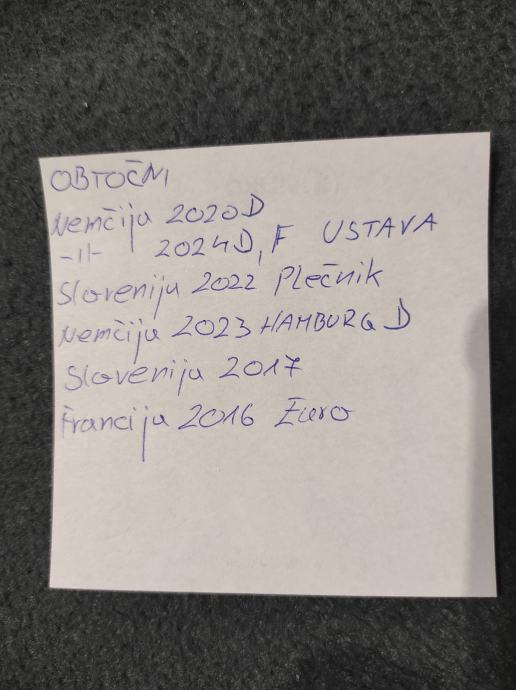 OBTOČNI
Nemčija 2020D
-||- 2024D, F USTAVA
Slovenija 2022 Plečnik
Nemčija 2023 HAMBURG D
Slovenija 2017
Francija 2016 Euro